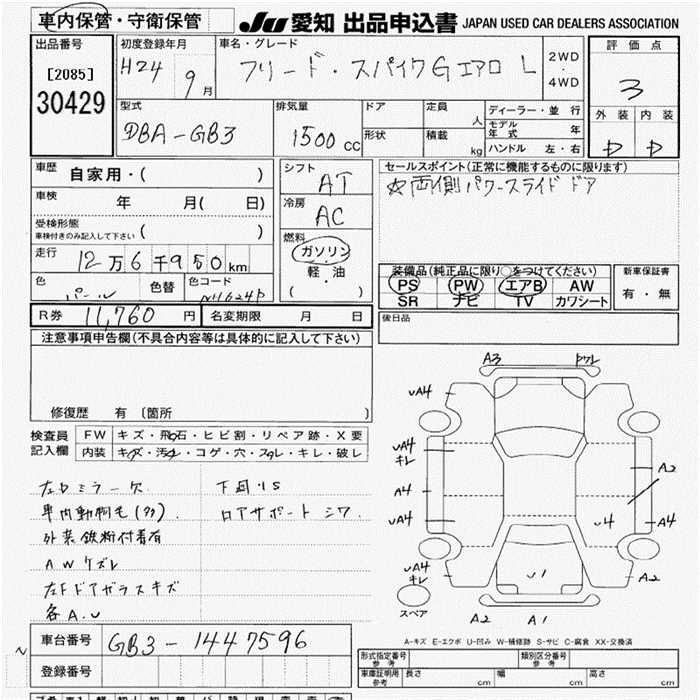 車内保管・守衛保管
JU 愛知 出品申込書 JAPAN USED CAR DEALERS ASSOCIATION
出品番号
[2085]
30429
初度登録年月
H24 9月
車名・グレード
フリード・スパイクGエアロ L
2WD
・
4WD
評価点
3
外装 内装
D D
型式
DBA-GB3
排気量
1500cc
ドア
形状
定員 人
積載 kg
ディーラー・並行
モデル年式 年
ハンドル 左・右
車歴 自家用・( )
車検 年 月( 日)
受検形態
車検付きのみ記入して下さい ( )
走行 12万6千950km
色 パール
色替
色コード NH624P
シフト
AT
冷房
AC
燃料
ガソリン
軽・油
( )
セールスポイント(正常に機能するものに限ります)
☆両側パワースライドドア
装備品(純正品に限り○をつけてください)
PS PW エアB AW
SR ナビ TV カワシート
新車保証書
有・無
R券 11,760円
名変期限 月 日
後日品
注意事項申告欄(不具合内容等は具体的に記入して下さい)
修復歴 有 〔箇所 〕
検査員記入欄
FW キズ・飛石・ヒビ割・リペア跡・X要
内装 キズ・汚れ・コゲ・穴・スレ・キレ・破レ
左ドミラー欠
車内動物毛(多).
外装鉄粉付着有
AWケズレ
左Fドアガラスキズ
各A.U
下回りS
ロアサポートシワ
A3
ワレ
UA4
UA4
キレ
A4
UA4
UA4
キレ
A2
A4
U4
A2
U1
A2 A1
スペア
A-キズ E-エクボ U-凹み W-補修跡 S-サビ C-腐食 XX-交換済
車台番号 GB3-1447596
登録番号
形式指定番号
参考
類別区分番号
参考
車庫証明用
参考
長さ cm 幅 cm 高さ cm